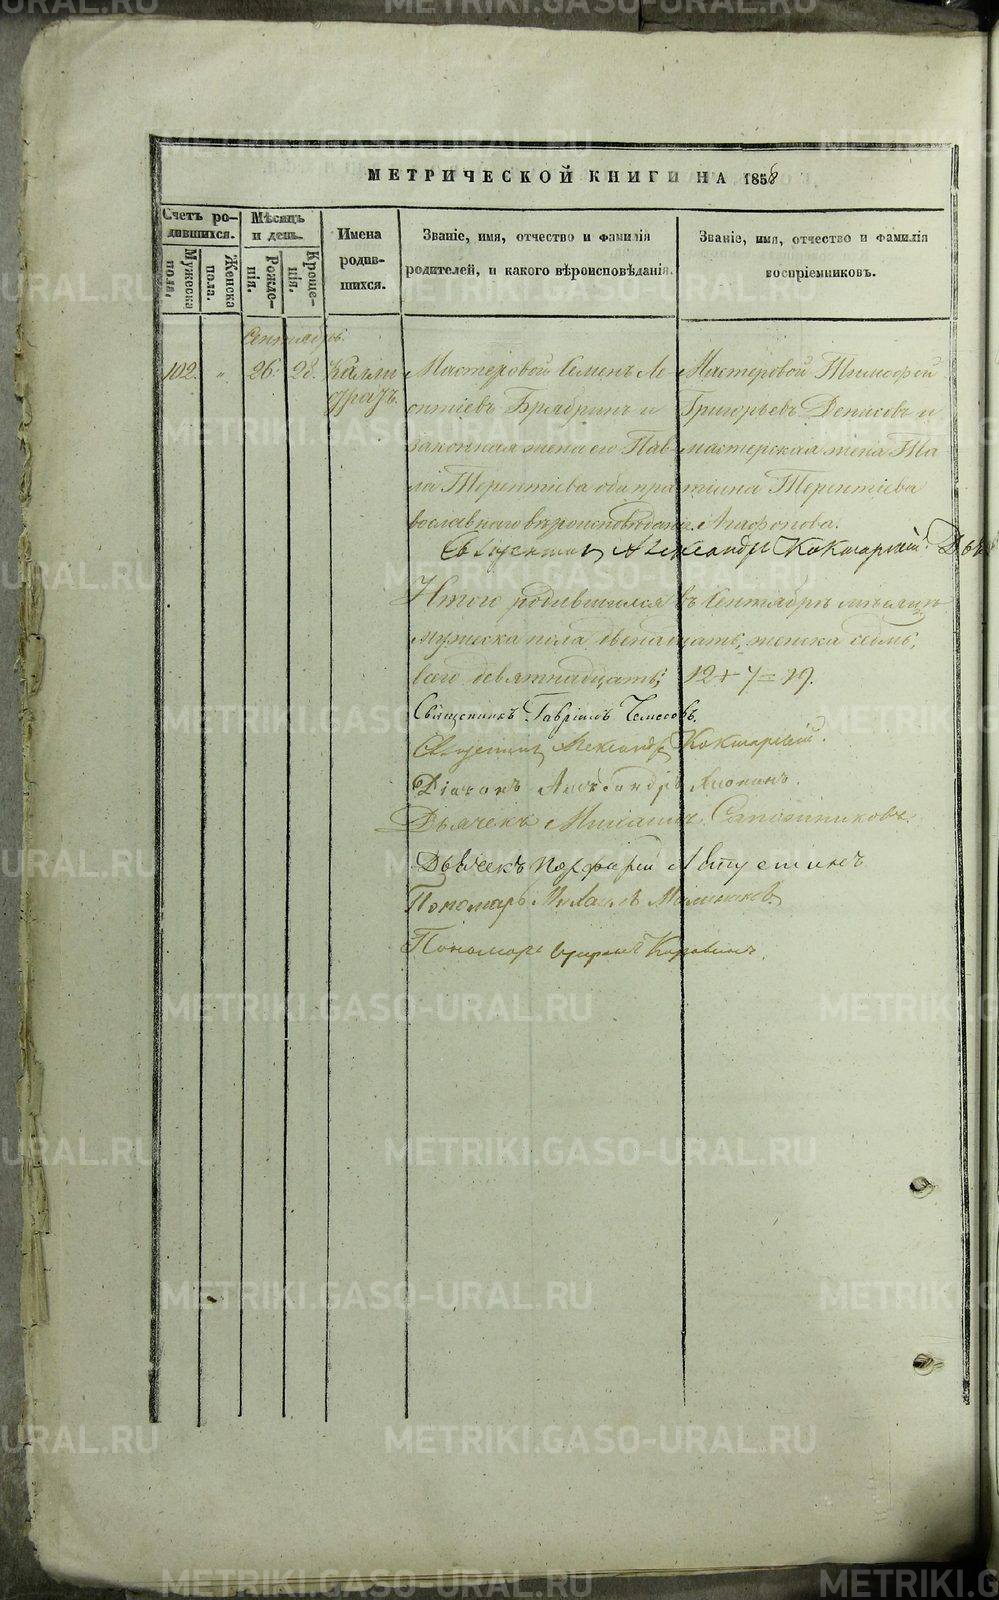 METRIKI.GASO-URAL.RU
МЕТРИЧЕСКОЙ КНИГИ НА 1858
Счетъ ро-
дившихся.
Мужеска
пола.
Женска
пола.
Мѣсяцъ
и день.
Рожде-
нія.
Креще-
нія.
Имена
родив-
шихся.
Званіе, имя, отчество и фамилія
родителей, и какого вѣроисповѣданія.
Званіе, имя, отчество и фамилія
воспріемниковъ.
Сентябрь
102. „ 26. 28.
Мастеровой Семенъ Ле
онтіевъ и
законная жена его Пав
ла Терентіева оба пра
вославнаго вѣроисповѣданія.
Мастеровой Тимофей
Григорьевъ Денисовъ и
мастерская жена Та
тіана Терентіева
Агафонова.
Священникъ Александръ Кокшарскій.
Итого родившихся въ Сентябрѣ мѣсяцѣ
мужеска пола двенадцать, женска седмь,
всего девятнадцать; 12 + 7 = 19.
Священникъ Гавріилъ
Священникъ Александръ Кокшарскій.
Діаконъ Александръ
Дьячекъ Михаилъ Сапожниковъ.
Дьячекъ Порфирій
Пономарь Михаилъ
Пономарь